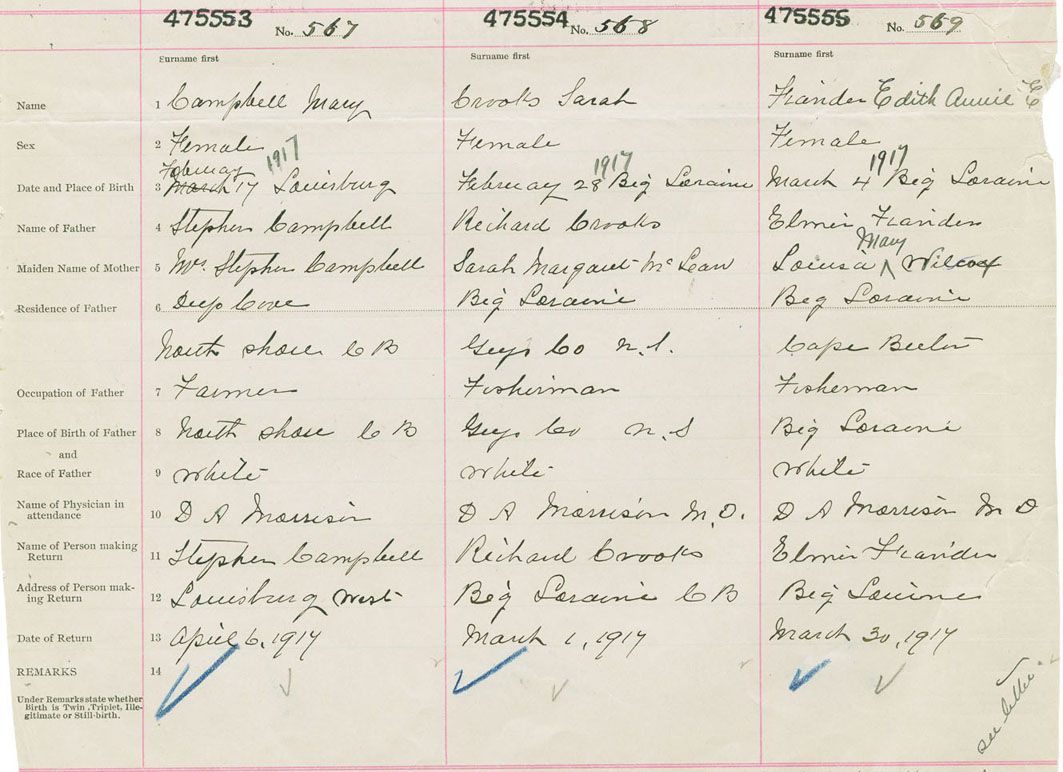 475553 No. 567 475554 No. 568 475555 No. 569
Surname first Surname first Surname first
Name 1 Campbell Mary Crooks Sarah Edith Annie E
Sex 2 Female Female Female
February 1917 1917 1917
Date and Place of Birth 3 March 17 Louisburg February 28 Big Loraine March 4 Big Loraine
Name of Father 4 Stephen Campbell Richard Crooks Elmer
Mary
Maiden Name of Mother 5 Mrs. Stephen Campbell Sarah Margaret McLean Louisa Wilcox
Residence of Father 6 Deep Cove Big Loraine Big Loraine
North shore C B Guys Co N.S. Cape Breton
Occupation of Father 7 Farmer Fisherman Fisherman
Place of Birth of Father 8 North shore C B Guys Co N.S Big Loraine
and
Race of Father 9 White White White
Name of Physician in
attendance 10 D A Morrison D A Morrison M.D. D A Morrison M D
Name of Person making
Return 11 Stephen Campbell Richard Crooks Elmer
Address of Person mak-
ing Return 12 Louisburg West Big Loraine C B Big Loraine
Date of Return 13 April 6, 1917 March 1, 1917 March 30, 1917
REMARKS 14
Under Remarks state whether
Birth is Twin, Triplet, Ille-
gitimate or Still-birth.
see letter